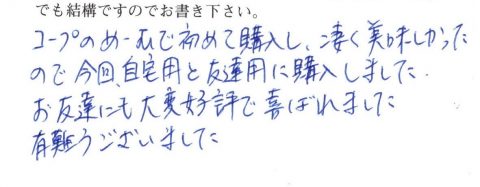 でも結構ですのでお書き下さい。
コープのめーむで初めて購入し、凄く美味しかった
ので今回、自宅用と友達用に購入しました。
お友達にも大変好評で喜ばれました
有難うございました